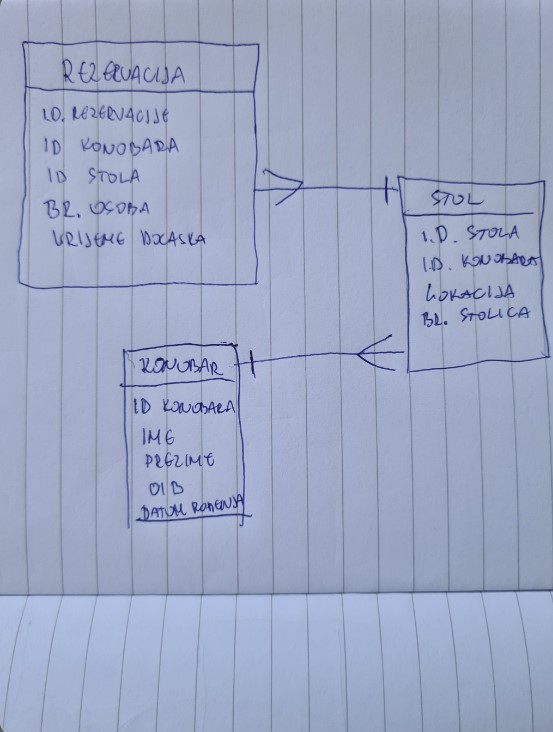 REZERVACIJA
I.D. REZERVACIJE
ID KONOBARA
ID STOLA
BR. OSOBA
VRIJEME DOLASKA
STOL
I.D. STOLA
I.D. KONOBARA
LOKACIJA
BR. STOLICA
KONOBAR
ID KONOBARA
IME
PREZIME
OIB
DATUM ROĐENJA